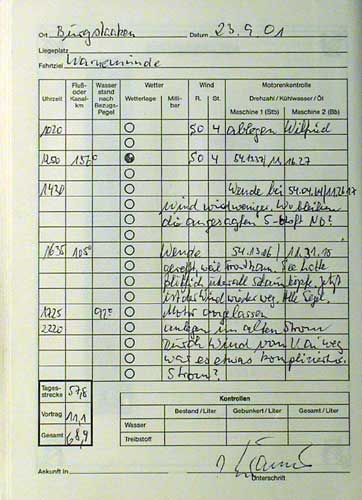 Ort Burgstaaken Datum 23.9.01
Liegeplatz
Fahrtziel Warnemünde
Uhrzeit Fluß- oder Kanal- km Wasser stand nach Bezugs- Pegel Wetter Wetterlage Milli- bar Wind R. St. Motorenkontrolle Drehzahl / Kühlwasser / Öl Maschine 1 (Stb) Maschine 2 (Bb)
1020 SO 4 ablegen Wilfried
1200 157° SO 4 11.16.27
1430 Wende bei 54.04.14/11.26.17
Wind wird weniger. Wo bleiben
die angesagten 5- NO?
1635 105° Wende 54.13.16 / 11.31.15
gerefft, weil
plötzlich überall Schaumköpfe. Jetzt
ist der Wind wieder weg. Alle Segel.
1725 92° Motor angelassen
2220 anlegen im alten Strom
Durch Wind vom Kai weg
war es etwas komplizierter.
Strom?
Tages- strecke 57,8
Vortrag 11,1
Gesamt 68,9
Kontrollen
Bestand / Liter Gebunkert / Liter Gesamt / Liter
Wasser
Treibstoff
Ankunft in
Unterschrift